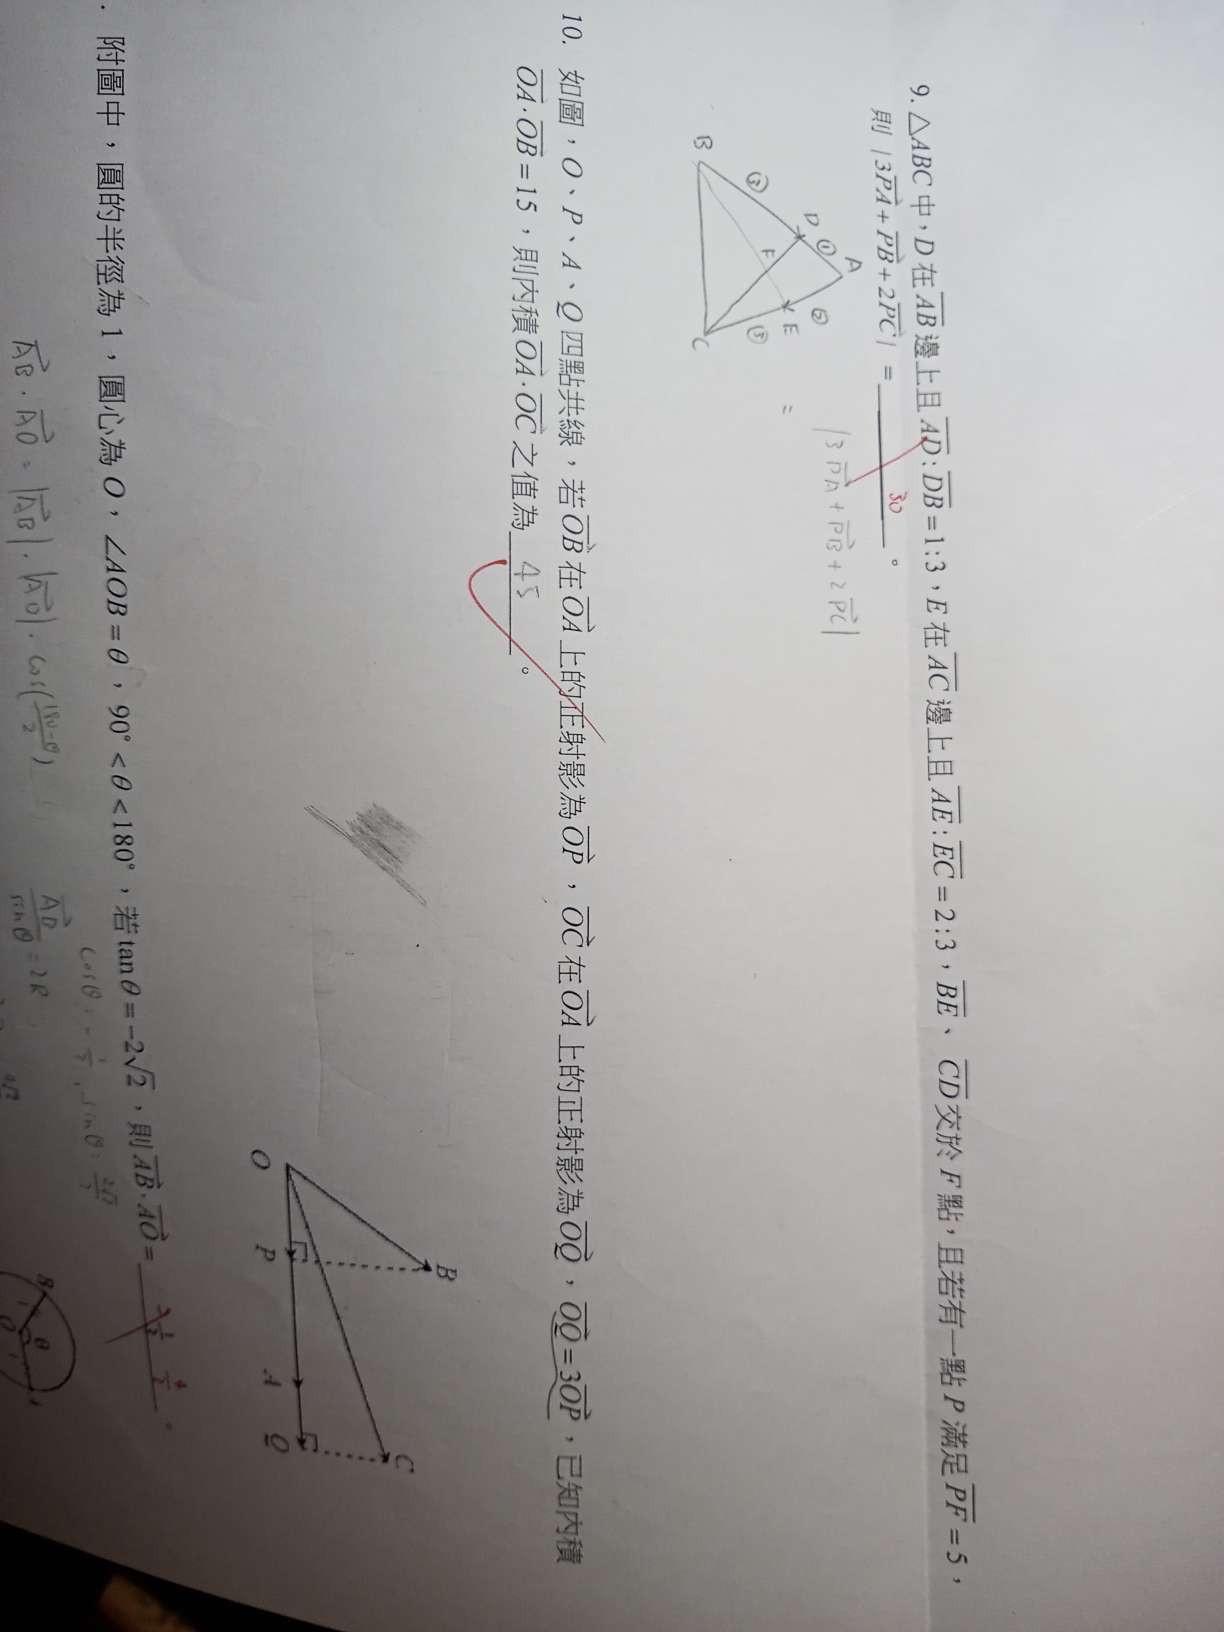 9. △ABC中,D在AB邊上且AD:DB=1:3,E在AC邊上且AE:EC=2:3,BE、CD交於F點,且若有一點P滿足PF=5,
則|3PA+PB+2PC|=30。
|3PA+PB+2PC|
=
A
D
①
②
③
E
F
③
B
C
10. 如圖,O、P、A、Q四點共線,若OB在OA上的正射影為OP,OC在OA上的正射影為OQ,OQ=3OP,已知內積
OA·OB=15,則內積OA·OC之值為45。
B
C
O
P
A
Q
. 附圖中,圓的半徑為1,圓心為O,∠AOB=θ,90°<θ<180°,若tanθ=-2√2,則AB·AO=
cosθ=-1/3, sinθ=
AB·AO=|AB|·|AO|·cos((180-θ)/2)
sinθ
=2R
B
θ
O
1